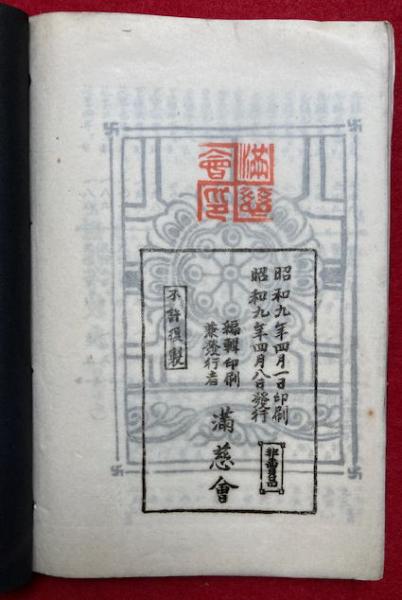 滿慈會印
昭和九年四月一日印刷
昭和九年四月八日發行
非賣品
編輯印刷
兼發行者
滿慈會
不許複製